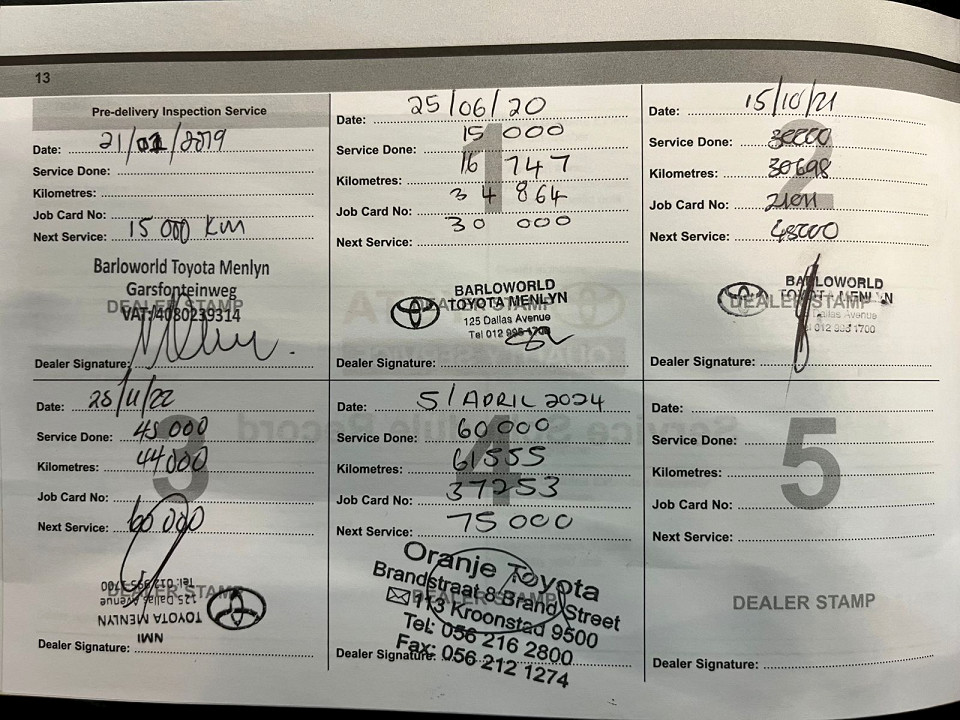 13
Pre-delivery Inspection Service
Date: 21/01/2019
Service Done:
Kilometres:
Job Card No:
Next Service: 15 000 km
Barloworld Toyota Menlyn
Garsfonteinweg
DEALER STAMP
VAT:4080239314
Dealer Signature:
1
Date: 25/06/20
Service Done: 15 000
Kilometres: 16 747
Job Card No: 34 864
Next Service: 30 000
BARLOWORLD
TOYOTA MENLYN
125 Dallas Avenue
Tel 012 995 1700
DEALER STAMP
Dealer Signature:
2
Date: 15/10/21
Service Done: 30000
Kilometres: 30698
Job Card No:
Next Service: 45000
BARLOWORLD
TOYOTA MENLYN
DEALER STAMP
Dallas Avenue
012 995 1700
Dealer Signature:
3
Date: 25/11/22
Service Done: 45 000
Kilometres: 44000
Job Card No:
Next Service: 60 000
DEALER STAMP
NMI
TOYOTA MENLYN
125 Dallas Avenue
Tel: 012 995 1700
Dealer Signature:
4
Date: 5/APRIL 2024
Service Done: 60000
Kilometres: 61555
Job Card No: 37253
Next Service: 75000
Oranje Toyota
Brandstraat 8 Brand Street
DEALER STAMP
113 Kroonstad 9500
Tel: 056 216 2800
Fax: 056 212 1274
Dealer Signature:
5
Date:
Service Done:
Kilometres:
Job Card No:
Next Service:
DEALER STAMP
Dealer Signature: